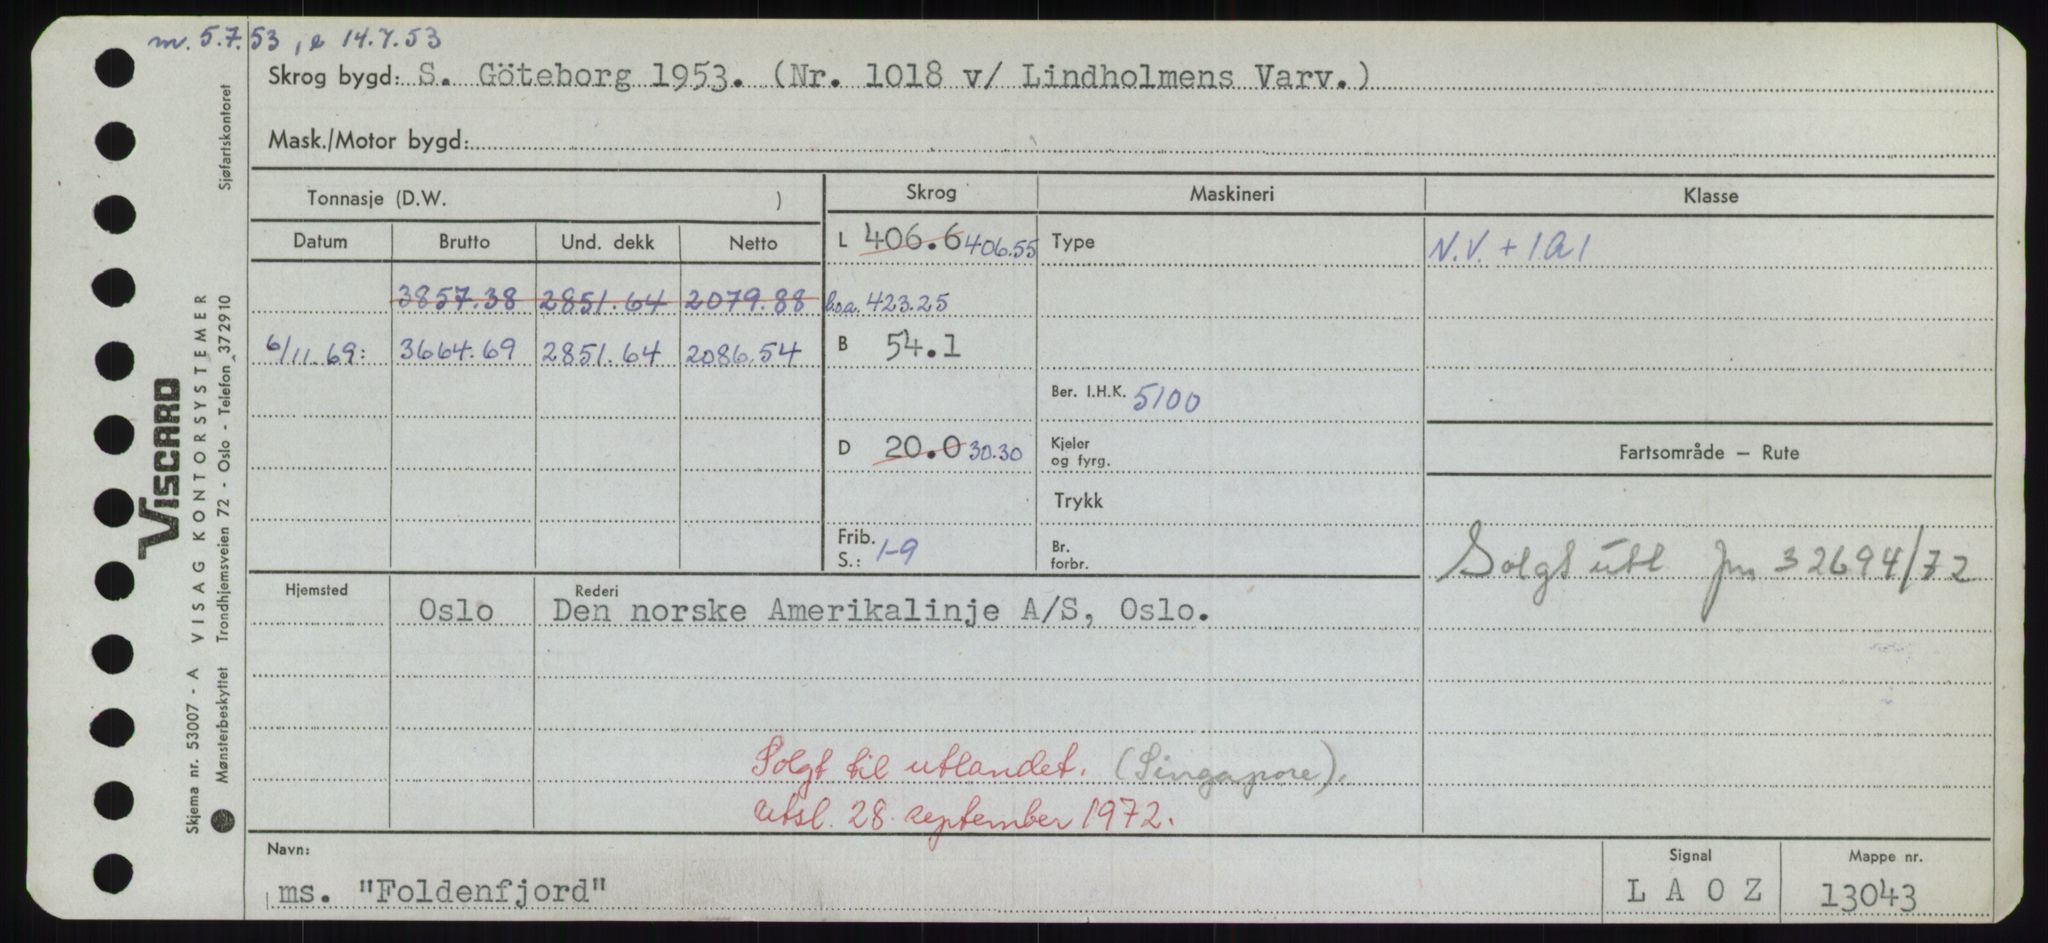 m. 5.7.53, e 14.7.53
Skrog bygd: S. Göteborg 1953. (Nr. 1018 v/ Lindholmens Varv.)
Mask./Motor bygd:
Tonnasje (D.W. )
Skrog
Maskineri
Klasse
Datum Brutto Und. dekk Netto
L 406.6 406.55
Type
N.V. + 1A1
3857.38 2851.64 2079.88
l.o.a. 423.25
6/11.69: 3664.69 2851.64 2086.54
B 54.1
Ber. I.H.K. 5100
D 20.0 30.30
Kjeler
og fyrg.
Fartsområde – Rute
Trykk
Frib.
S.: 1-9
Br.
forbr.
Solgt utl jnr 32694/72
Hjemsted
Rederi
Oslo
Den norske Amerikalinje A/S, Oslo.
Solgt til utlandet. (Singapore).
Utsl. 28. september 1972.
Navn:
ms. "Foldenfjord"
Signal
L A O Z
Mappe nr.
13043
Sjøfartskontoret
VISCARD
VISAG KONTORSYSTEMER
Trondhjemsveien 72 - Oslo - Telefon 372910
Skjema nr. 53007 - A
Mønsterbeskyttet